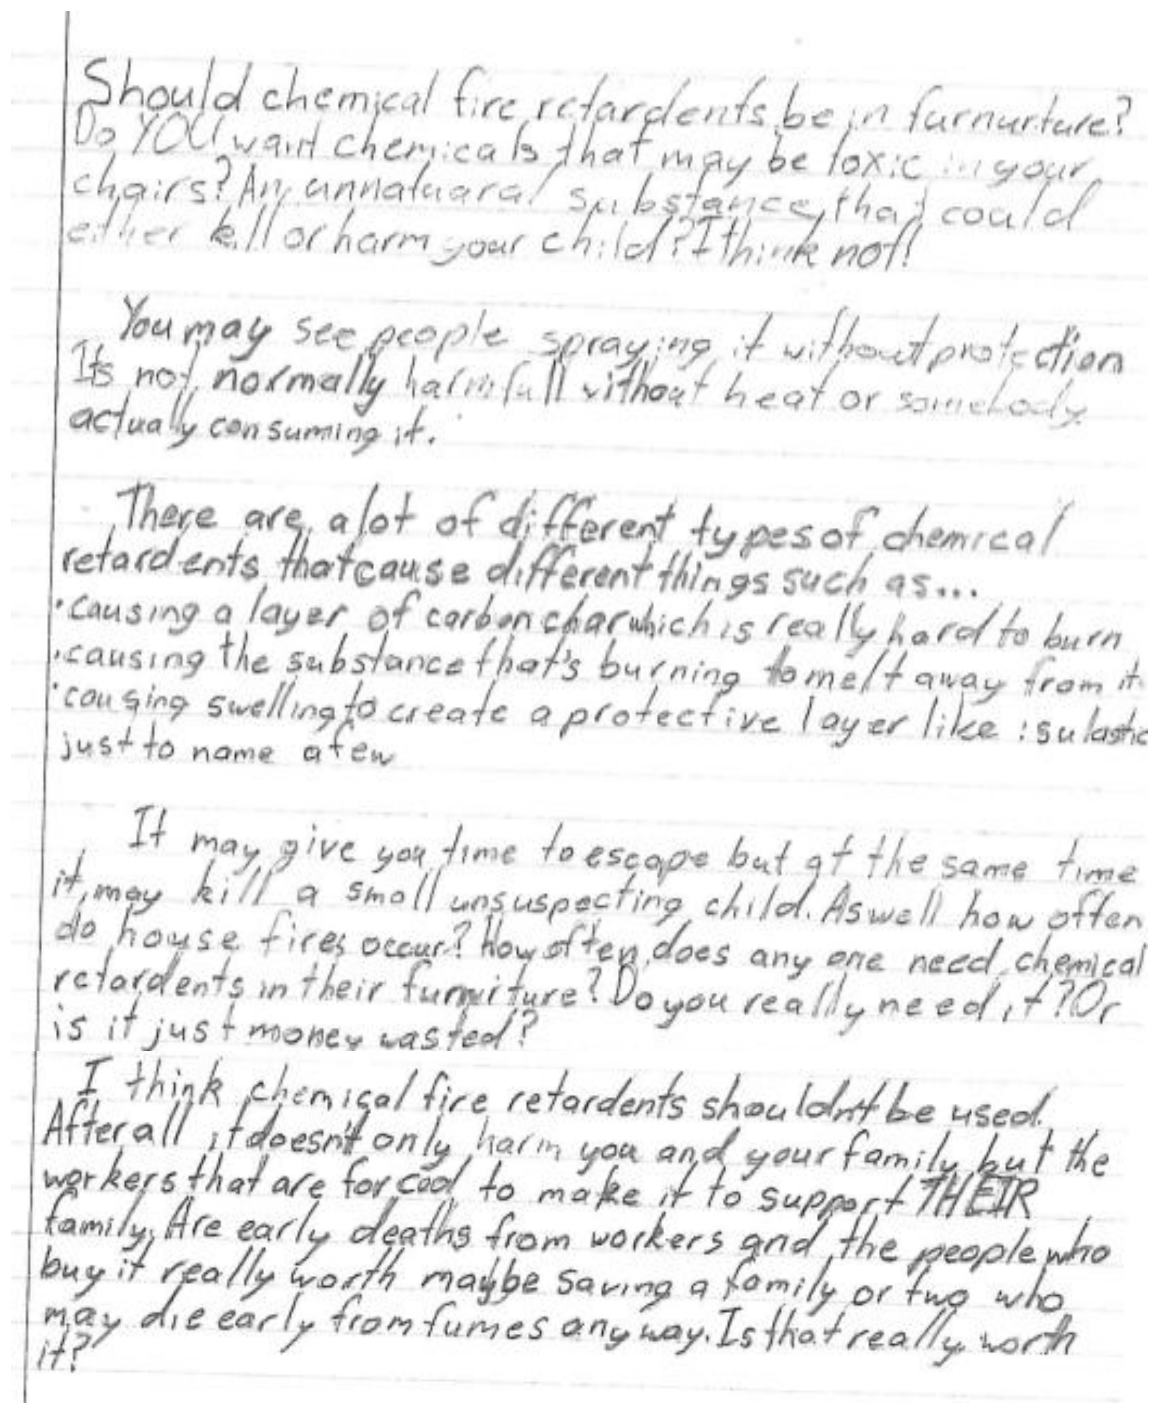 Should chemical fire retardents be in furnurture?
Do YOU want chemicals that may be toxic in your
chairs? An unnatuaral substance that could
either kill or harm your child? I think not!
You may see people spraying it without protection
Its not normally harmfull without heat or somebody
actually consuming it.
There are a lot of different types of chemical
retardents that cause different things such as...
• causing a layer of carbon char which is really hard to burn
• causing the substance that's burning to melt away from it
• causing swelling to create a protective layer like : sulastic
just to name a few
It may give you time to escape but at the same time
it may kill a small unsuspecting child. As well how often
do house fires occur? How often does any one need chemical
retardents in their furniture? Do you really need it? Or
is it just money wasted?
I think chemical fire retardents shouldn't be used.
After all it doesn't only harm you and your family but the
workers that are forced to make it to support THEIR
family. Are early deaths from workers and the people who
buy it really worth maybe saving a family or two who
may die early from fumes anyway. Is that really worth
it?